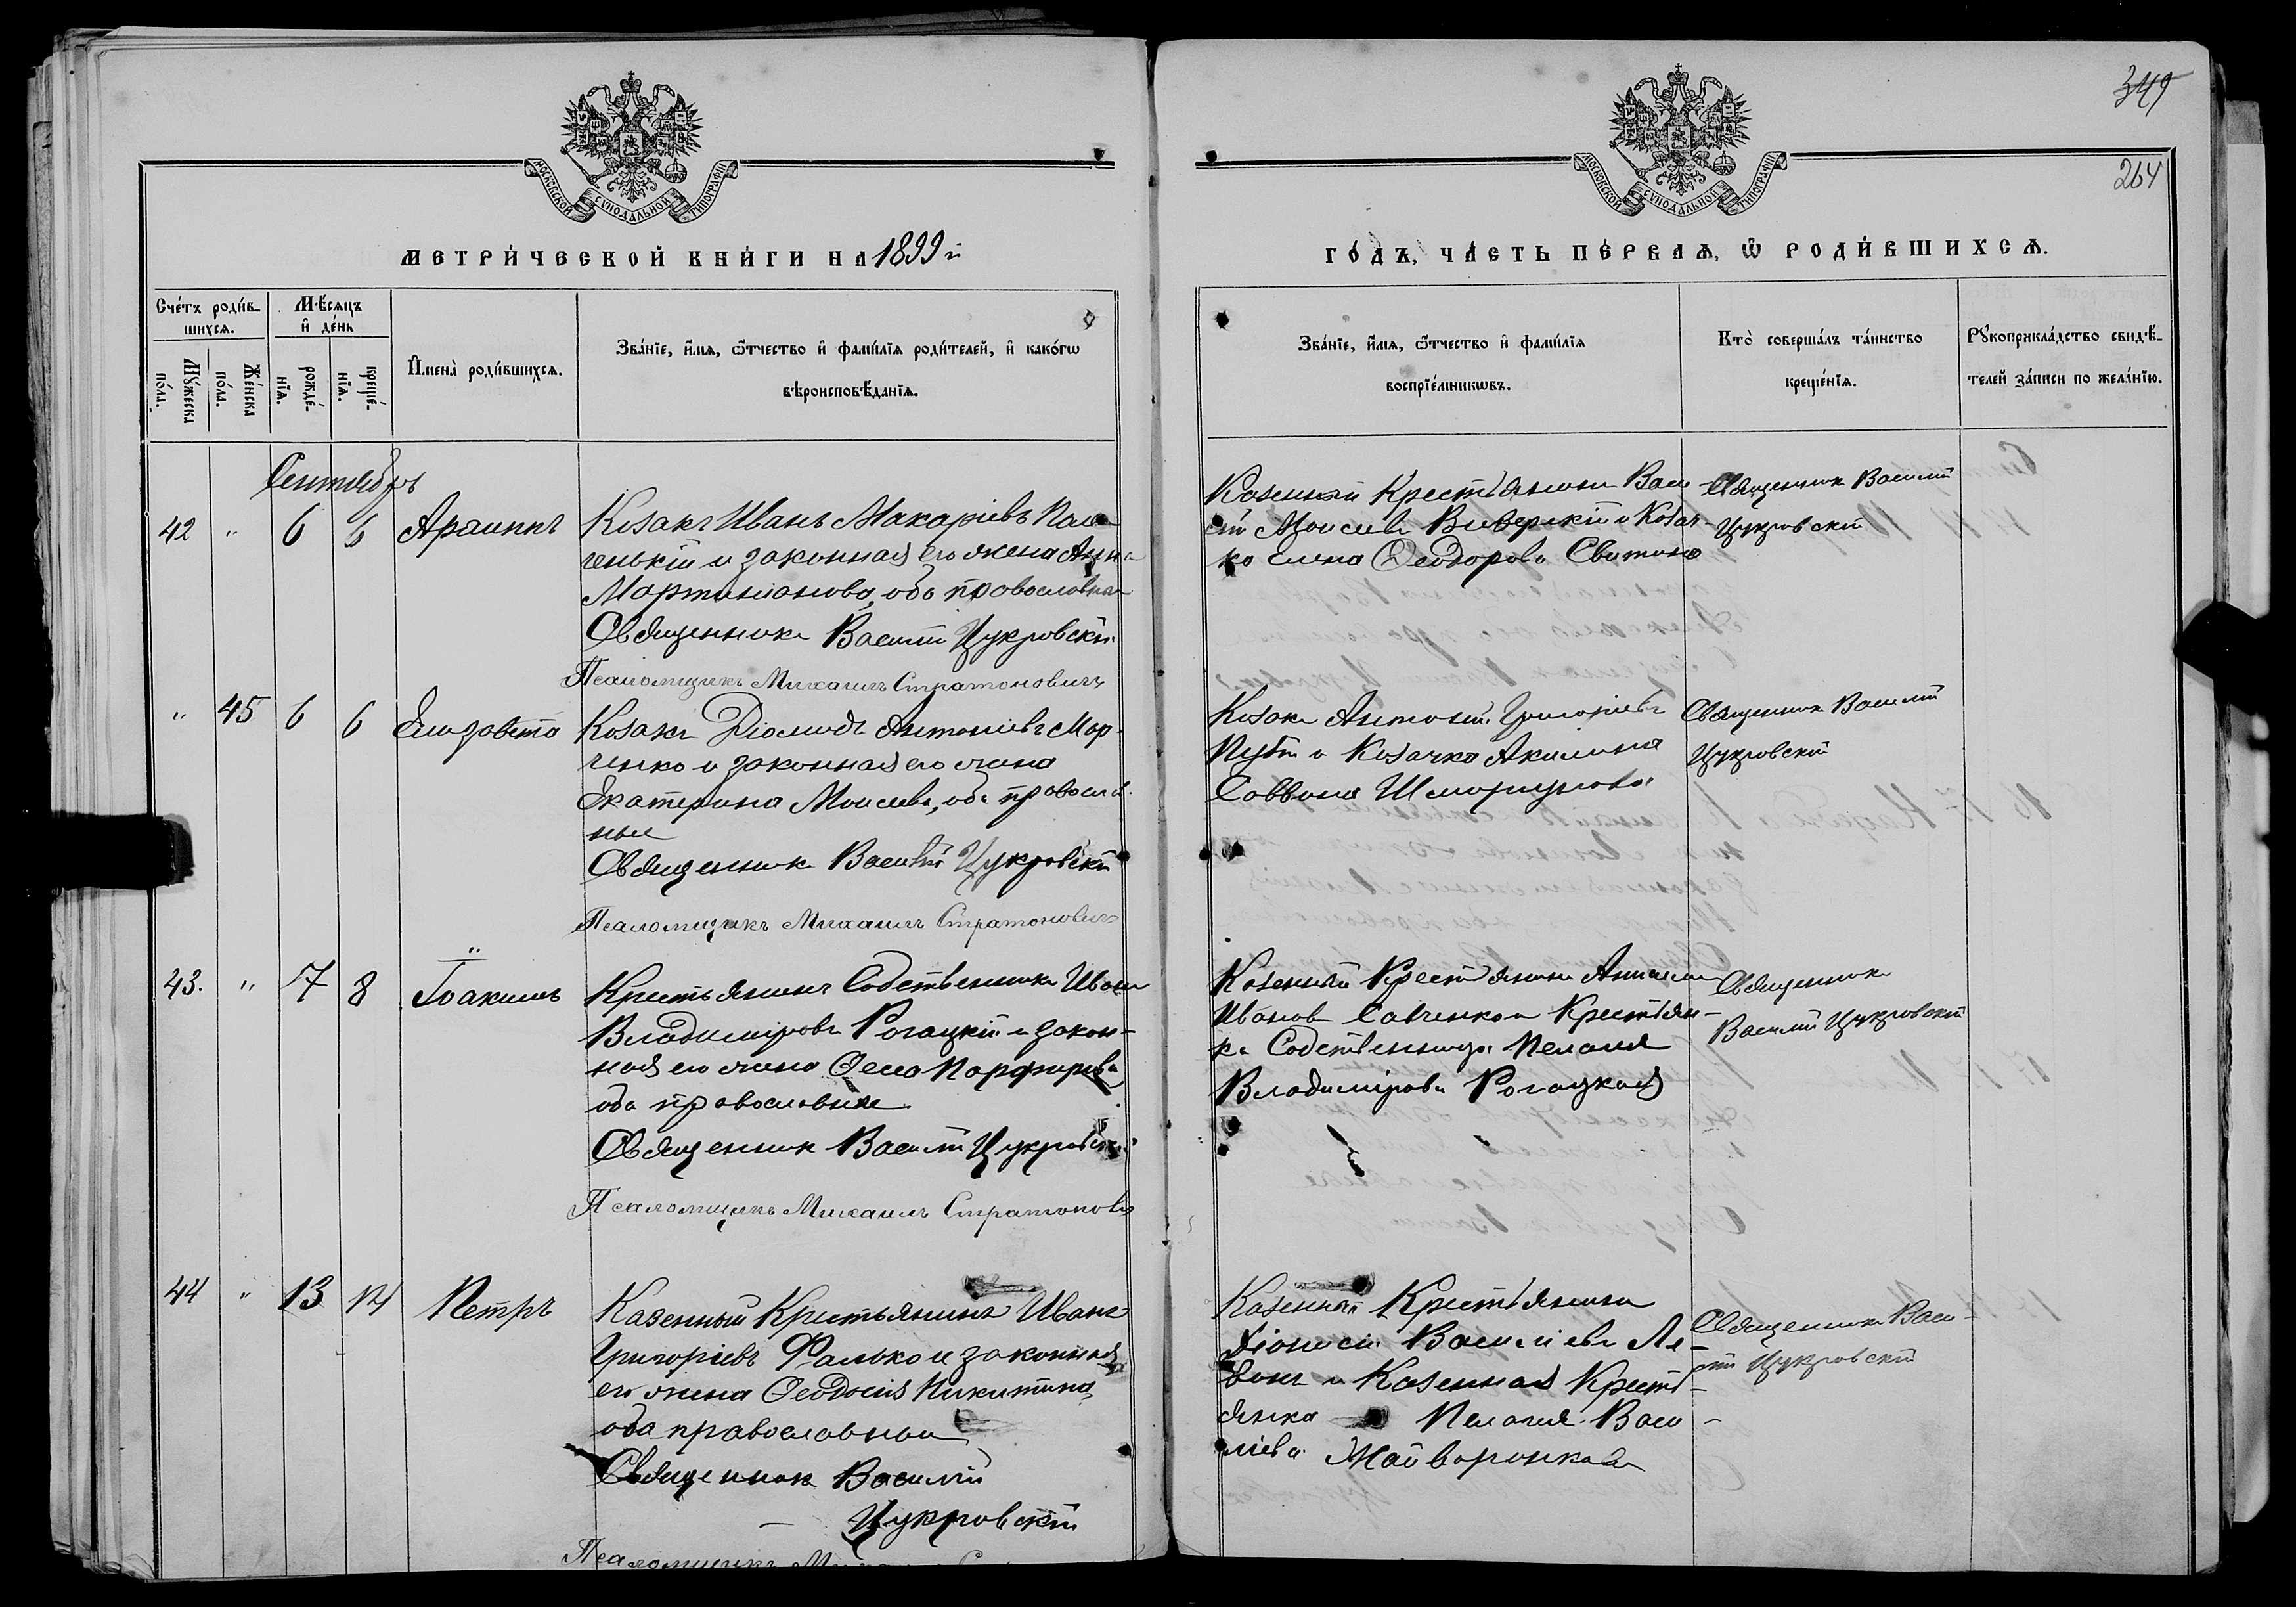 349
264
МОСКОВСКОЙ СѴНОДАЛЬНОЙ ТИПОГРАФІИ
МОСКОВСКОЙ СѴНОДАЛЬНОЙ ТИПОГРАФІИ
МЕТРИ́ЧЕСКОЙ КНИ́ГИ НА 1899 й
ГО́ДЪ, ЧА́СТЬ ПЕ́РВАѦ, Ѽ РОДИ́ВШИХСѦ.
Сче́тъ роди́в-
шихсѧ.
Мꙋ́жеска по́ла.
Же́нска по́ла.
М҆ѣсѧцъ
и҆ де́нь
рожде́-
нїѧ.
креще́-
нїѧ.
И҆мена̀ роди́вшихсѧ.
Зва́нїе, и҆́мѧ, ѻ҆́тчество и҆ фами́лїѧ роди́телей, и҆ како́гѡ
вѣроисповѣ́данїѧ.
Зва́нїе, и҆́мѧ, ѻ҆́тчество и҆ фами́лїѧ
воспрїе́мникѡвъ.
Кто̀ соверша́лъ та́инство
креще́нїѧ.
Рꙋкоприкла́дство свидѣ́-
телей за́писи по жела́нїю.
Сентябрь
42 " 6 6
Козакъ Иванъ Макаріевъ
ченькій и законная его жена Анна
Мартиніанова, оба православные
Священникъ Василій Цукровскій
Псаломщикъ Михаилъ Стратоновичъ
Казенный Крестьянинъ Васи-
лій Моисеевъ и Козач-
ка Елена Ѳеодорова
Священникъ Василій
Цукровскій
" 45 6 6 Елизавета
Козакъ Діомидъ Антоніевъ Мар-
ченко и законная его жена
Екатерина Моисеева, оба православ-
ные
Священникъ Василій Цукровскій
Псаломщикъ Михаилъ Стратоновичъ
Козакъ Антоній Григоріевъ
и Козачка Акилина
Саввина
Священникъ Василій
Цукровскій
43. " 7 8 Іоакимъ
Крестьянинъ Собственникъ Иванъ
Владиміровъ Рогацкій и закон-
ная его жена Ѳекла Порфирьева
оба православные
Священникъ Василій Цукровскій
Псаломщикъ Михаилъ Стратонович
Казенный Крестьянинъ
Ивановъ Савченко и Крестьян-
ка Собственница Пелагія
Владимірова Рогацкая
Священникъ
Василій Цукровскій
44 " 13 14 Петръ
Казенный Крестьянинъ Иванъ
Григоріевъ Фалько и законная
его жена Ѳеодосія Никитина,
оба православные
Священникъ Василій
Цукровскій
Псаломщикъ
Казенный Крестьянинъ
Діонисій Василіевъ
и Казенная Кресть-
янка Пелагія Васи-
ліева Жайворонкова
Священникъ Васи-
лій Цукровскій